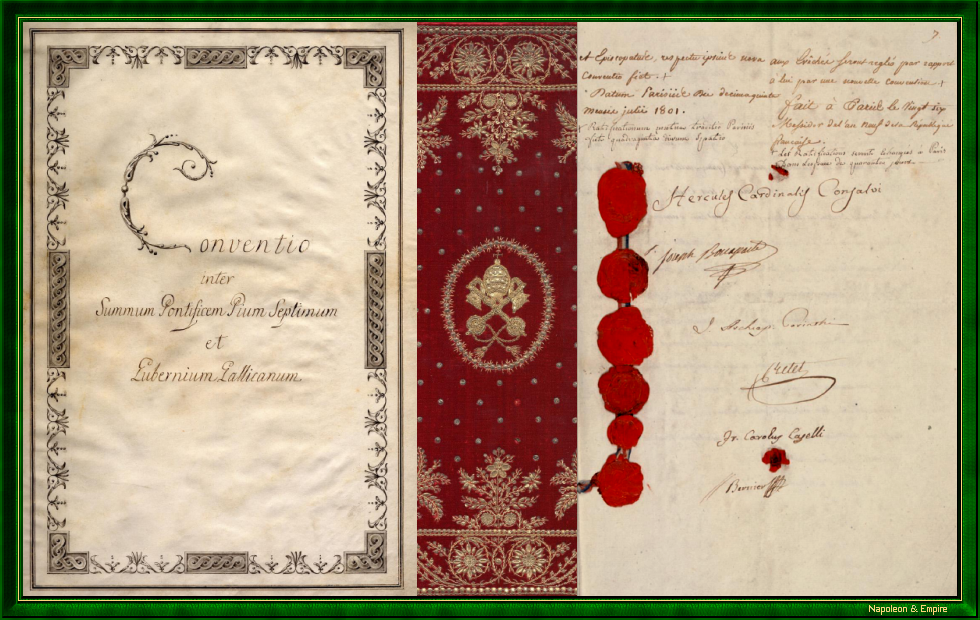 Conventio
inter
Summum Pontificem Pium Septimum
et
Gubernium Gallicanum
7
et Episcopatus, respectu ipsius nova
Conventio fiet. +
Datum Parisiis die decimaquinta
mensis julii 1801.
+ Ratificationum mutua traditio Parisiis
fiet quadraginta dierum spatio
aux Évêchés seront réglés par rapport
à lui par une nouvelle convention. +
fait à Paris le vingt six
Messidor de l'an neuf de la République
française.
+ Les Ratifications seront échangées à Paris
dans l'espace de quarante jours.
Hercules Cardinalis Consalvi
Joseph Bonaparte
J. Archiep.
Cretet
Fr. Carolus Caselli
Bernier
Napoleon & Empire